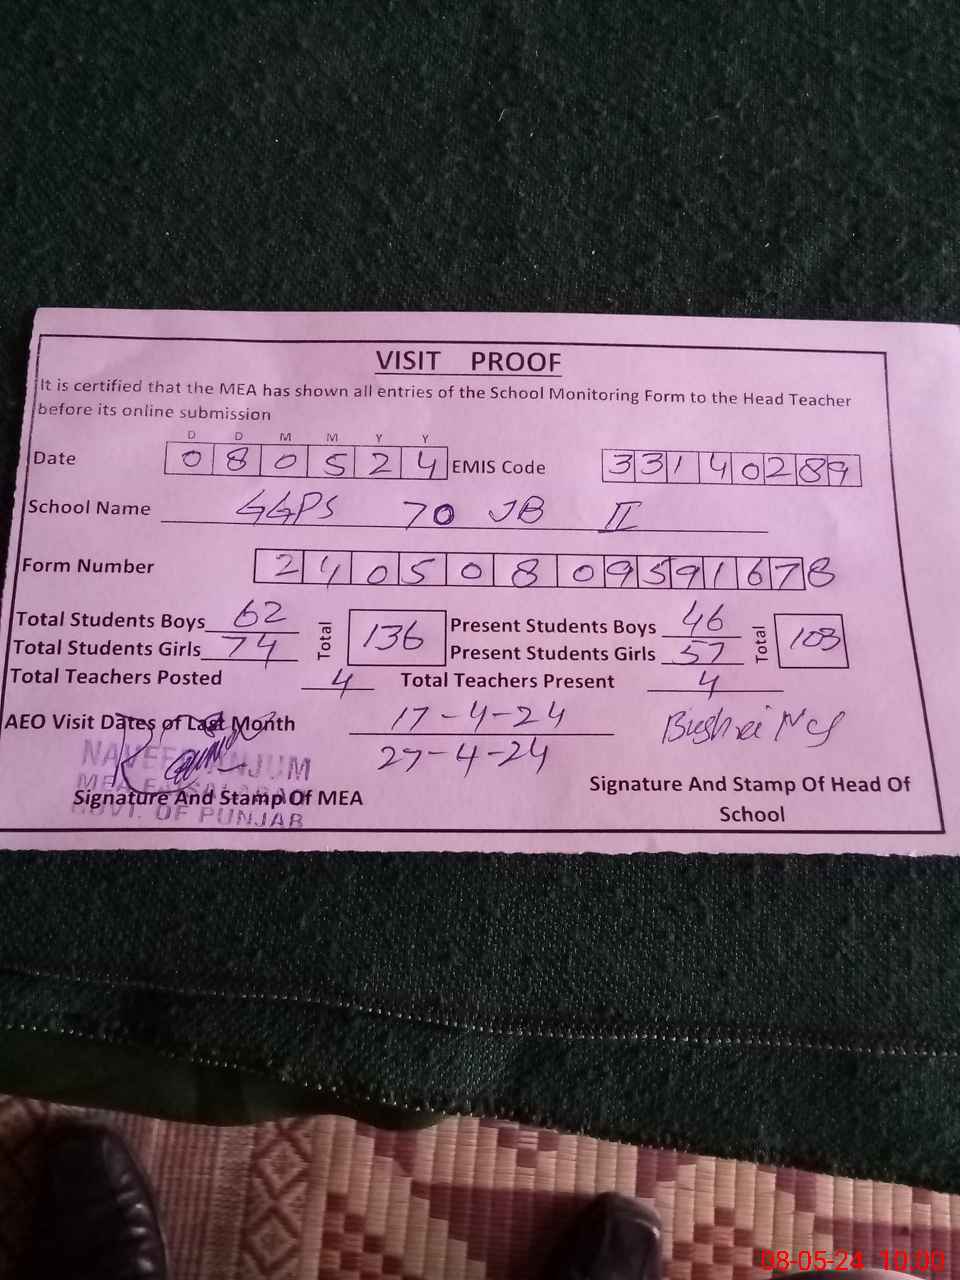 VISIT PROOF
It is certified that the MEA has shown all entries of the School Monitoring Form to the Head Teacher
before its online submission
D D M M Y Y
Date 0 8 0 5 2 4 EMIS Code 3 3 1 4 0 2 8 9
School Name GGPS 70 JB II
Form Number 2 4 0 5 0 8 0 9 5 9 1 6 7 8
Total Students Boys 62 Total 136 Present Students Boys 46 Total 103
Total Students Girls 74 Present Students Girls 57
Total Teachers Posted 4 Total Teachers Present 4
AEO Visit Dates of Last Month 17-4-24
27-4-24
NAVEED ANJUM
MEA
Signature And Stamp Of MEA
GOVT. OF PUNJAB
Signature And Stamp Of Head Of
School
08-05-24 10:00